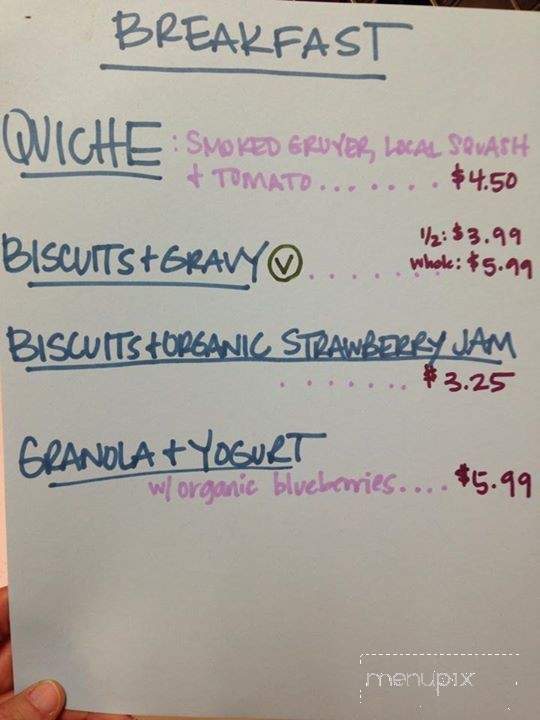 BREAKFAST
QUICHE : SMOKED GRUYER, LOCAL SQUASH
+ TOMATO....... $4.50
1/2: $3.99
BISCUITS + GRAVY Ⓥ ...... whole: $5.99
BISCUITS + ORGANIC STRAWBERRY JAM
....... $3.25
GRANOLA + YOGURT
w/ organic blueberries.... $5.99
menupix